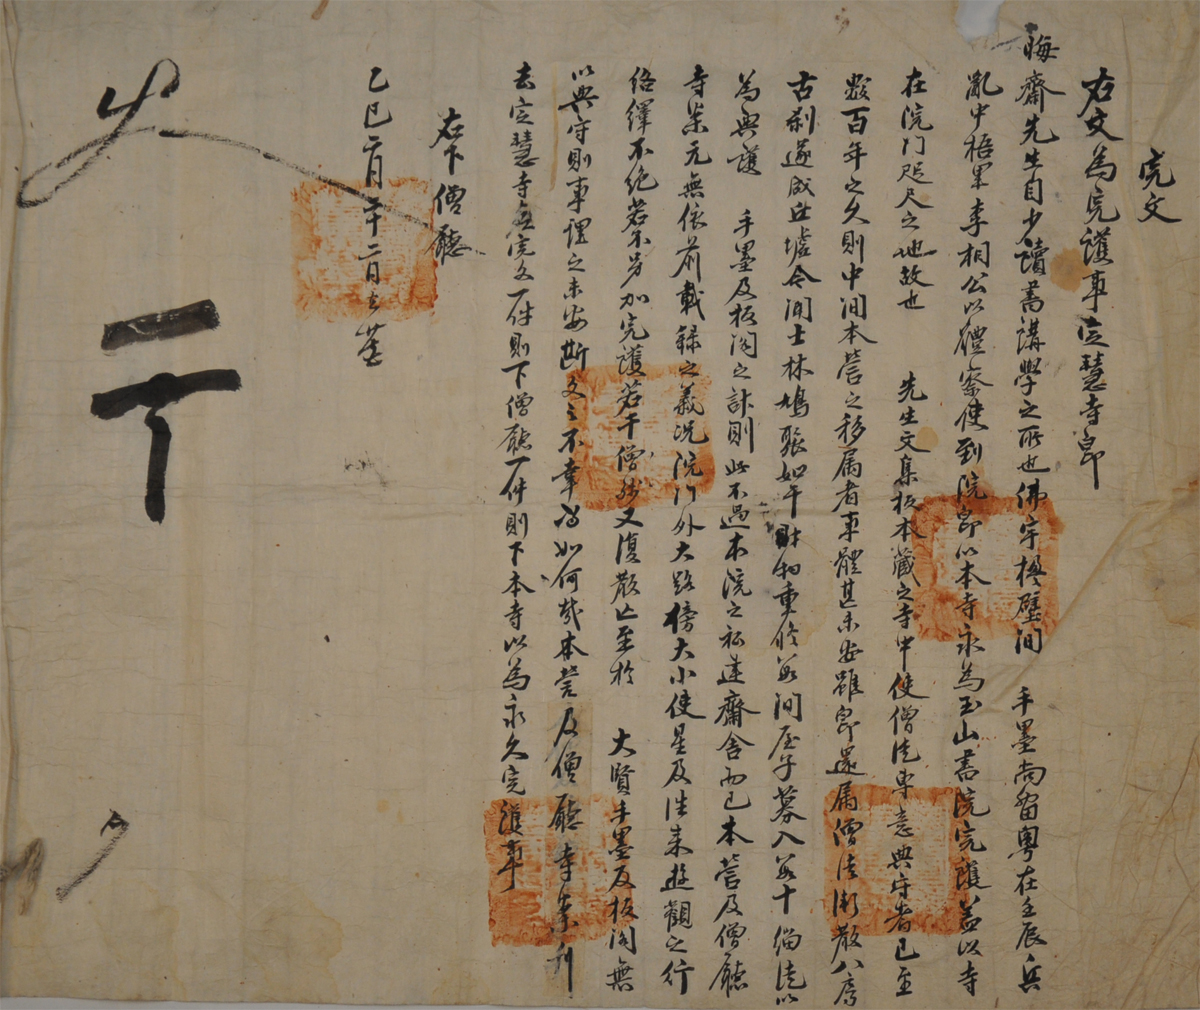 完文
右文為完護事定慧寺卽
晦齋先生自少讀書講學之所也佛宇楹壁間 手墨尚留粤在壬辰兵
亂中梧里李相公以體察使到院卽以本寺永為玉山書院完護盖以寺
在院门咫尺之地故也 先生文集板本藏之寺中使僧徒專意典守者已至
數百年之久則中间本營之移属者事體甚未安雖卽還属僧徒渐散八房
古刹遂成丘墟今聞士林鳩聚如干財力重修数间屋子募入数十緇徒以
為典護 手墨及板阁之計則此不過本院之私建齋舍而已本營及僧廳
寺案元無依前載錄之義况院门外大路傍大小使星及徃来遊觀之行
络繹不绝若不另加完護若干僧徒又復散亡至於 大賢手墨及板阁無
以典守則事理之未安斯文之不幸為如何哉本營及僧廳寺案刊
去定慧寺無完文一件則下僧廳一件則下本寺以為永久完護事
右下僧廳
乙巳二月二十二日